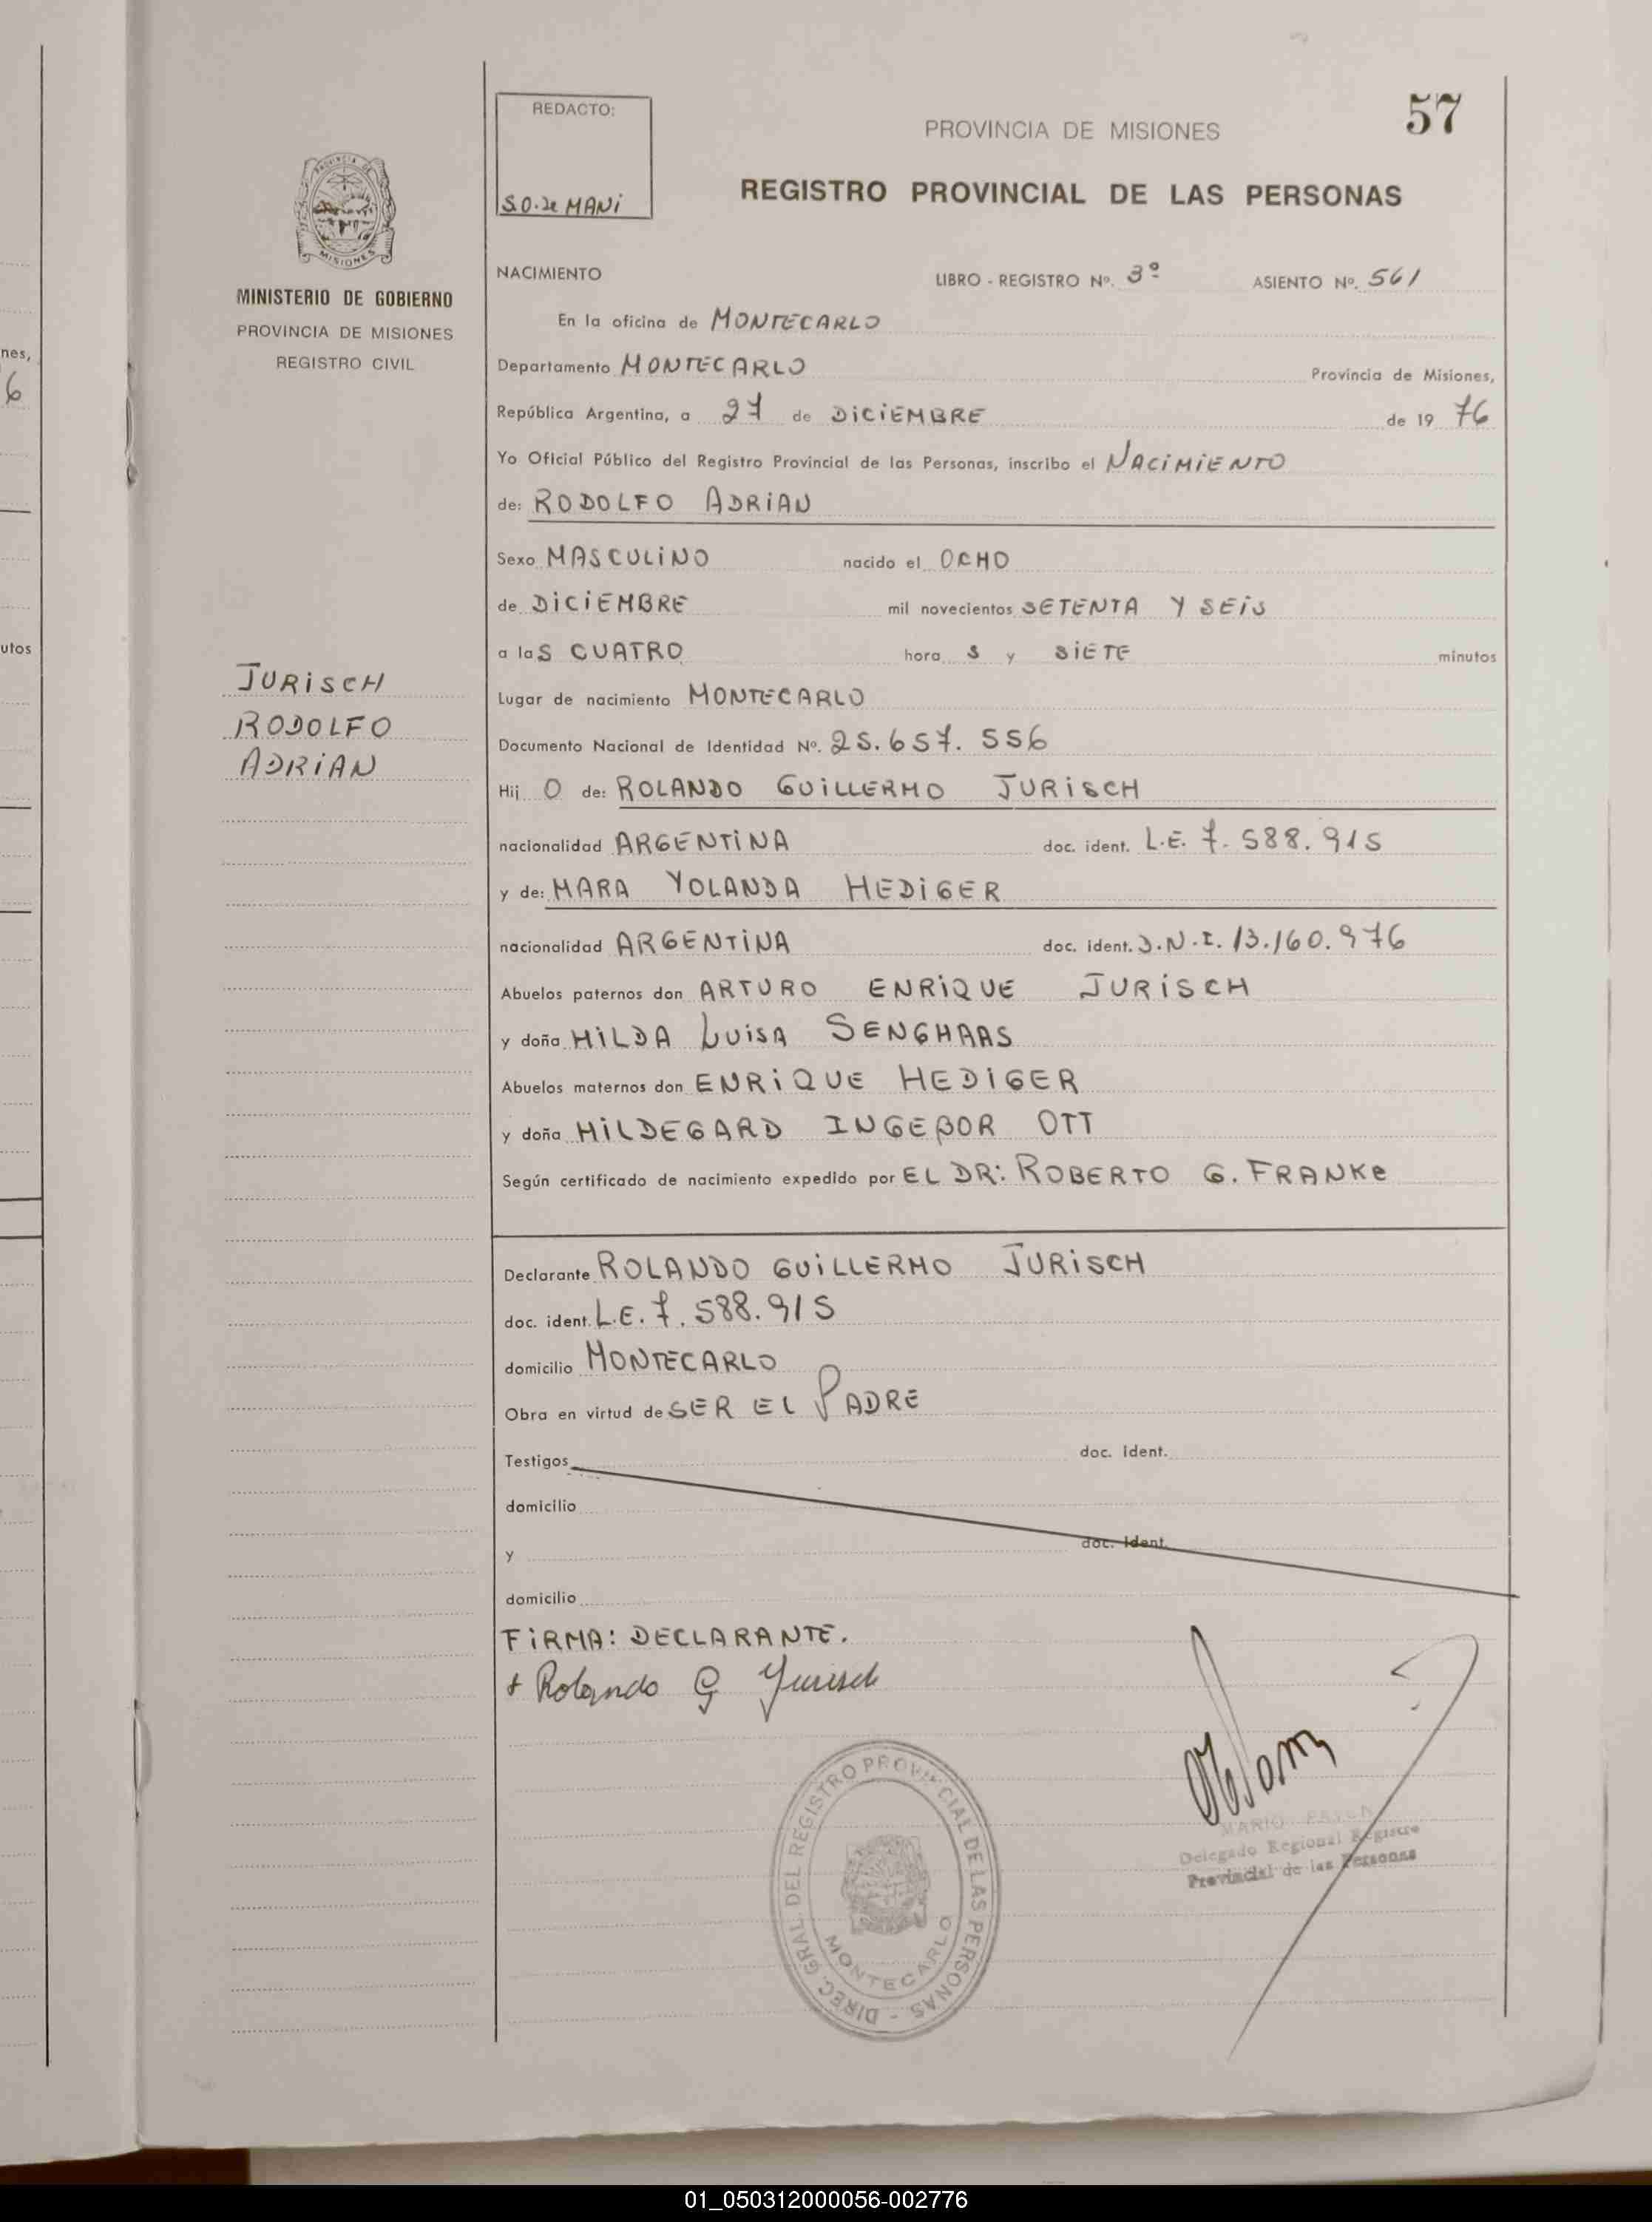 57
REDACTO:
S.O. de MANi
PROVINCIA DE MISIONES
REGISTRO PROVINCIAL DE LAS PERSONAS
PROVINCIA DE MISIONES
MINISTERIO DE GOBIERNO
PROVINCIA DE MISIONES
REGISTRO CIVIL
nes,
6
utos
JURiSCH
RODOLFO
ADRiAN
NACIMIENTO LIBRO - REGISTRO Nº. 3º ASIENTO Nº. 561
En la oficina de MONTECARLO
Departamento MONTECARLO Provincia de Misiones,
República Argentina, a 27 de DiCiEMBRE de 19 76
Yo Oficial Público del Registro Provincial de las Personas, inscribo el NACiMiENTO
de: RODOLFO ADRiAN
Sexo MASCULiNO nacido el OCHO
de DiCiEMBRE mil novecientos SETENTA Y SEiS
a laS CUATRO hora S y SiETE minutos
Lugar de nacimiento MONTECARLO
Documento Nacional de Identidad Nº. 25.657.556
Hij O de: ROLANDO GUiLLERMO JURiSCH
nacionalidad ARGENTiNA doc. ident. L.E. 7.588.915
y de: MARA YOLANDA HEDiGER
nacionalidad ARGENTiNA doc. ident. D.N.I. 13.160.976
Abuelos paternos don ARTURO ENRiQUE JURiSCH
y doña HiLDA LUiSA SENGHAAS
Abuelos maternos don ENRiQUE HEDiGER
y doña HiLDEGARD INGEBOR OTT
Según certificado de nacimiento expedido por EL DR: ROBERTO G. FRANKe
Declarante ROLANDO GUiLLERMO JURiSCH
doc. ident. L.E. 7.588.915
domicilio MONTECARLO
Obra en virtud de SER EL PADRE
Testigos doc. ident.
domicilio
y doc. ident.
domicilio
FiRMA: DECLARANTE.
Rolando G Jurisch
DIREC. GRAL. DEL REGISTRO PROVINCIAL DE LAS PERSONAS -
MONTECARLO
MARIO
Delegado Regional Registro
Provincial de las Personas
01_050312000056-002776